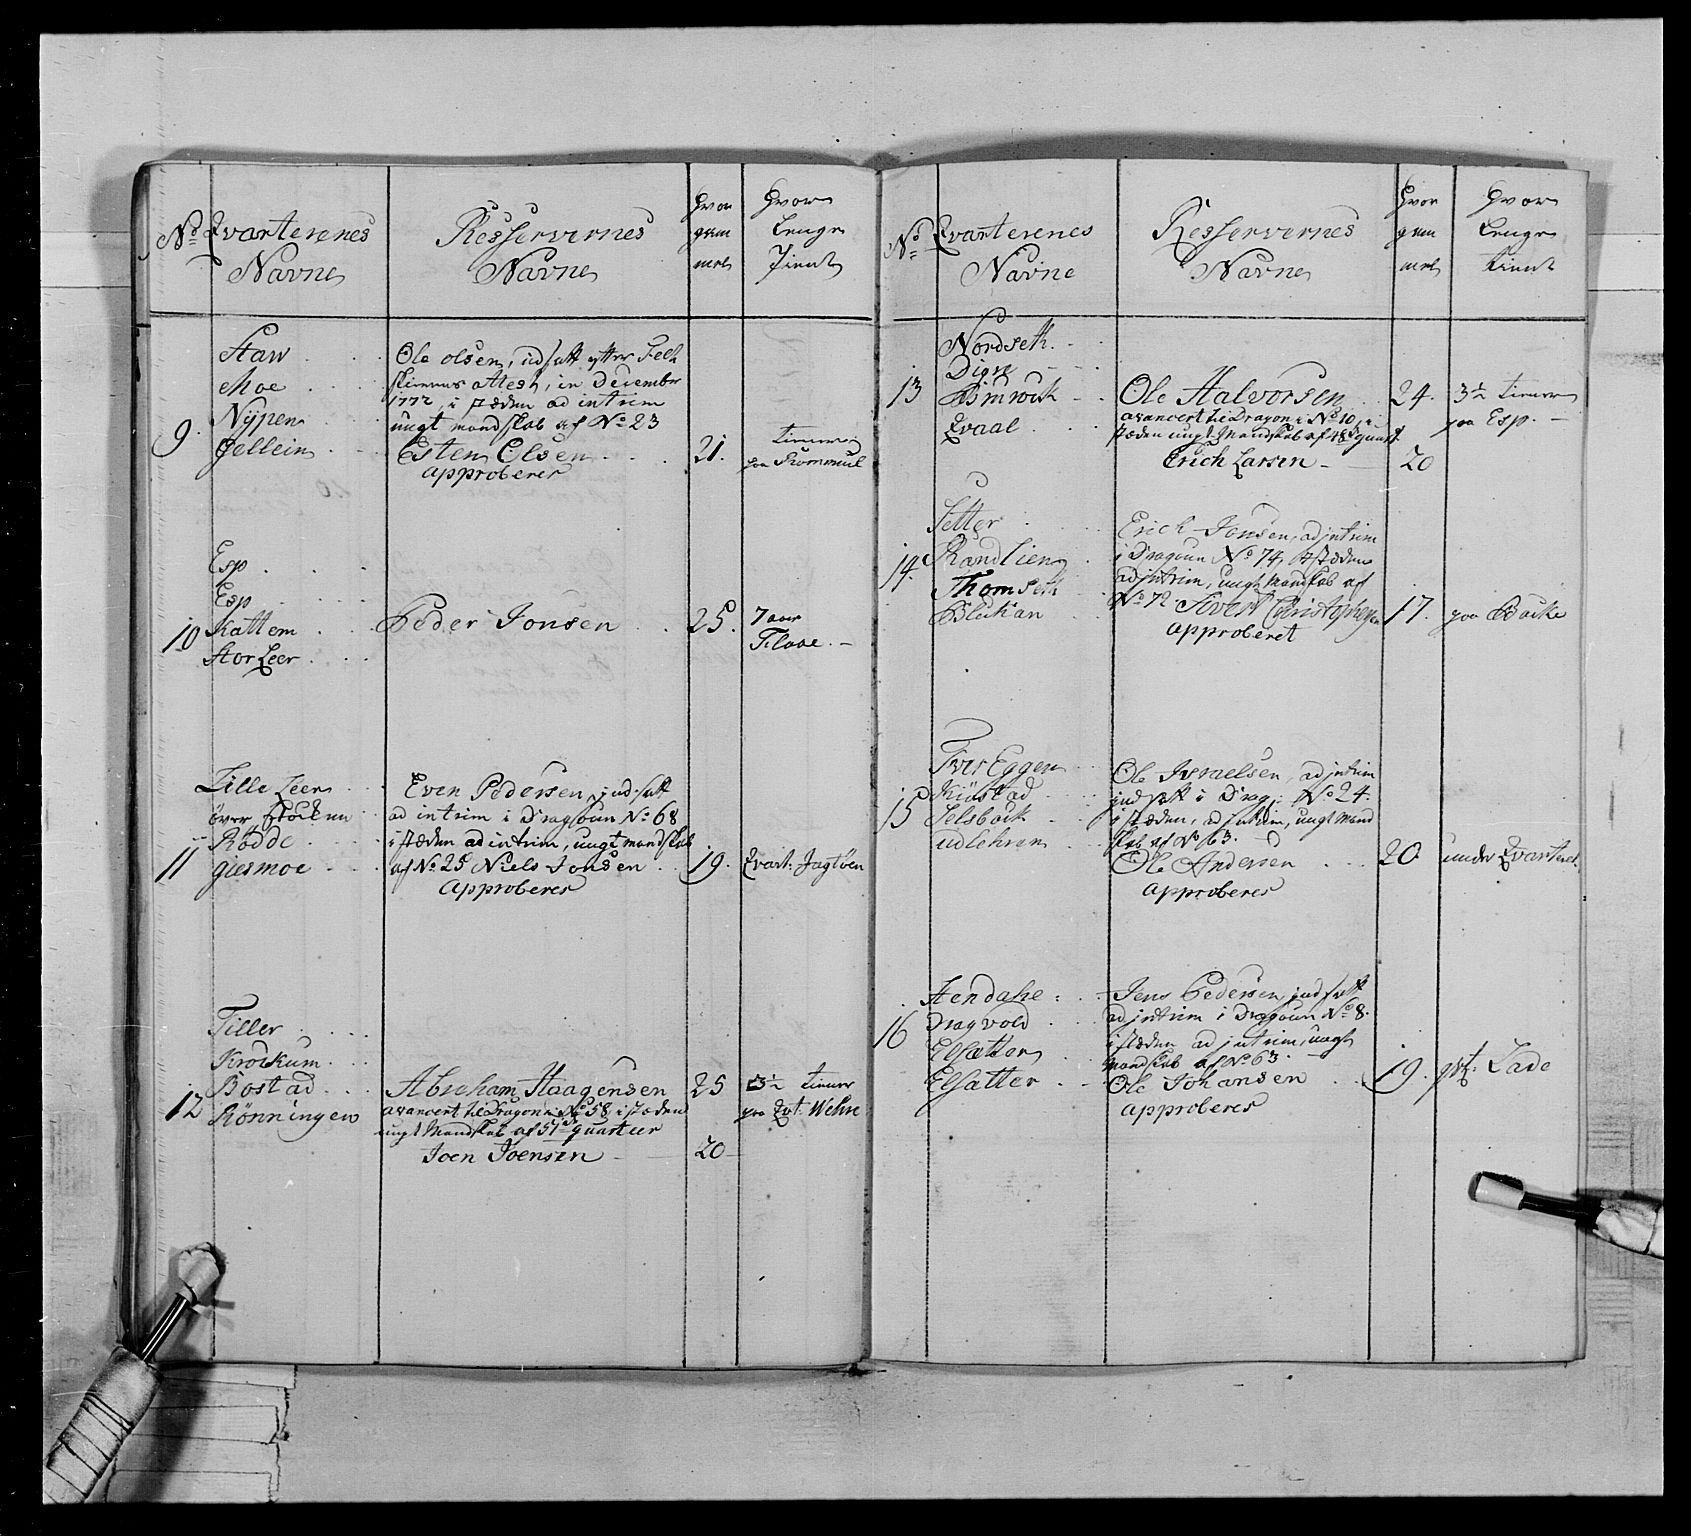 No Qvarterenes
Navne
Resservernes
Navne
hvor
gam
mel
hvor
Lenge
Tient
9.
Staw
Moe
Nÿpen
Gellein
Ole Olsen, udsatt efter Felt
skierens attest, in December
1772, i stæden ad intrim
ungt mandskab af No 23
Esten Olsen
approberes
21.
Timmer
paa
10
Esp
Esp
Kattem
Stor Leer
Peder Jonsen
25.
7 aar
Tilaae
11
Lille Leer
över Stocken
Rödde
giesmoe
Even Pedersen, indsatt
ad intrim i Dragoun No 68
i stæden ad intrim, ungt mandskab
af No 25 Niels Jonsen
approberes
19.
Qvart: Jagtöen
12
Tiller
Krockum
Bostad
Rönningen
Abraham Haagensen
avancert til Dragon i No 58, i stæden
ungt Mandskab af 57 quarteer
Joen Joensen
25
20
3½ timmer
paa Qvt: Wehre
No
Qvarterenes
Navne
Resservernes
Navne
hvor
gam
mel
hvor
Lenge
tient
13
Nordseth
Digre
Qvaal
Ole Halvorsen
avancert til Dragon i No 10, i
stæden ungt Mandskab af 48d quart
Erich Larsen
24.
20
3½ timmer
paa Esp.
14.
Setter
Randlien
Thomseth
Blechan
Erich Jonsen, ad intrim
i Dragoun No 74, i stæden
ad intrim, ungt Mandskab af
No 72 Sivert Christophersen
approberet
17.
paa Backe
15
Tver Eggen
Kiöstad
Selsback
udlehren
Ole Israelsen, ad intrim
indsatt i Drag: No 24.
i stæden, ad intrim, ungt Mand
skab af No 63.
Ole Andersen
approberes
20
under Qvarteret.
16
Stendahl
Dragvold
Elsætter
Elsatter
Jens Pedersen indsatt
ad intrim i Dragoun No 8.
i stæden ad intrim, ungt
mandskab af No 63.
Ole Johansen
approberes
19.
qvt: Lade